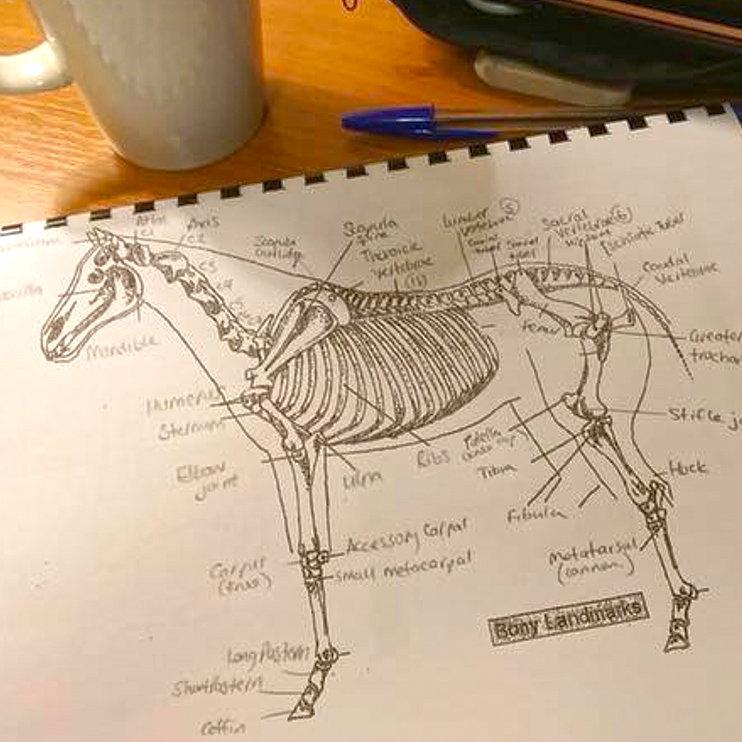 Atlas
C1
Axis
C2
C3
C4
C5
Scapula
Cartilidge
Scapula
Spine
Thoracic
vertebrae
(18)
Lumbar
vertebrae
(5)
Sacral
vertebrae
(5)
Caudal
Vertebrae
Mandible
Femur
Greater
Humerus
Sternum
Stifle jo
Elbow
joint
Ulna
Ribs
Patella
Tibia
Hock
Fibula
Accessory Carpal
Carpus
(knee)
Small metacarpal
Metatarsal
(cannon)
Bony Landmarks
Long Pastern
Short Pastern
Coffin